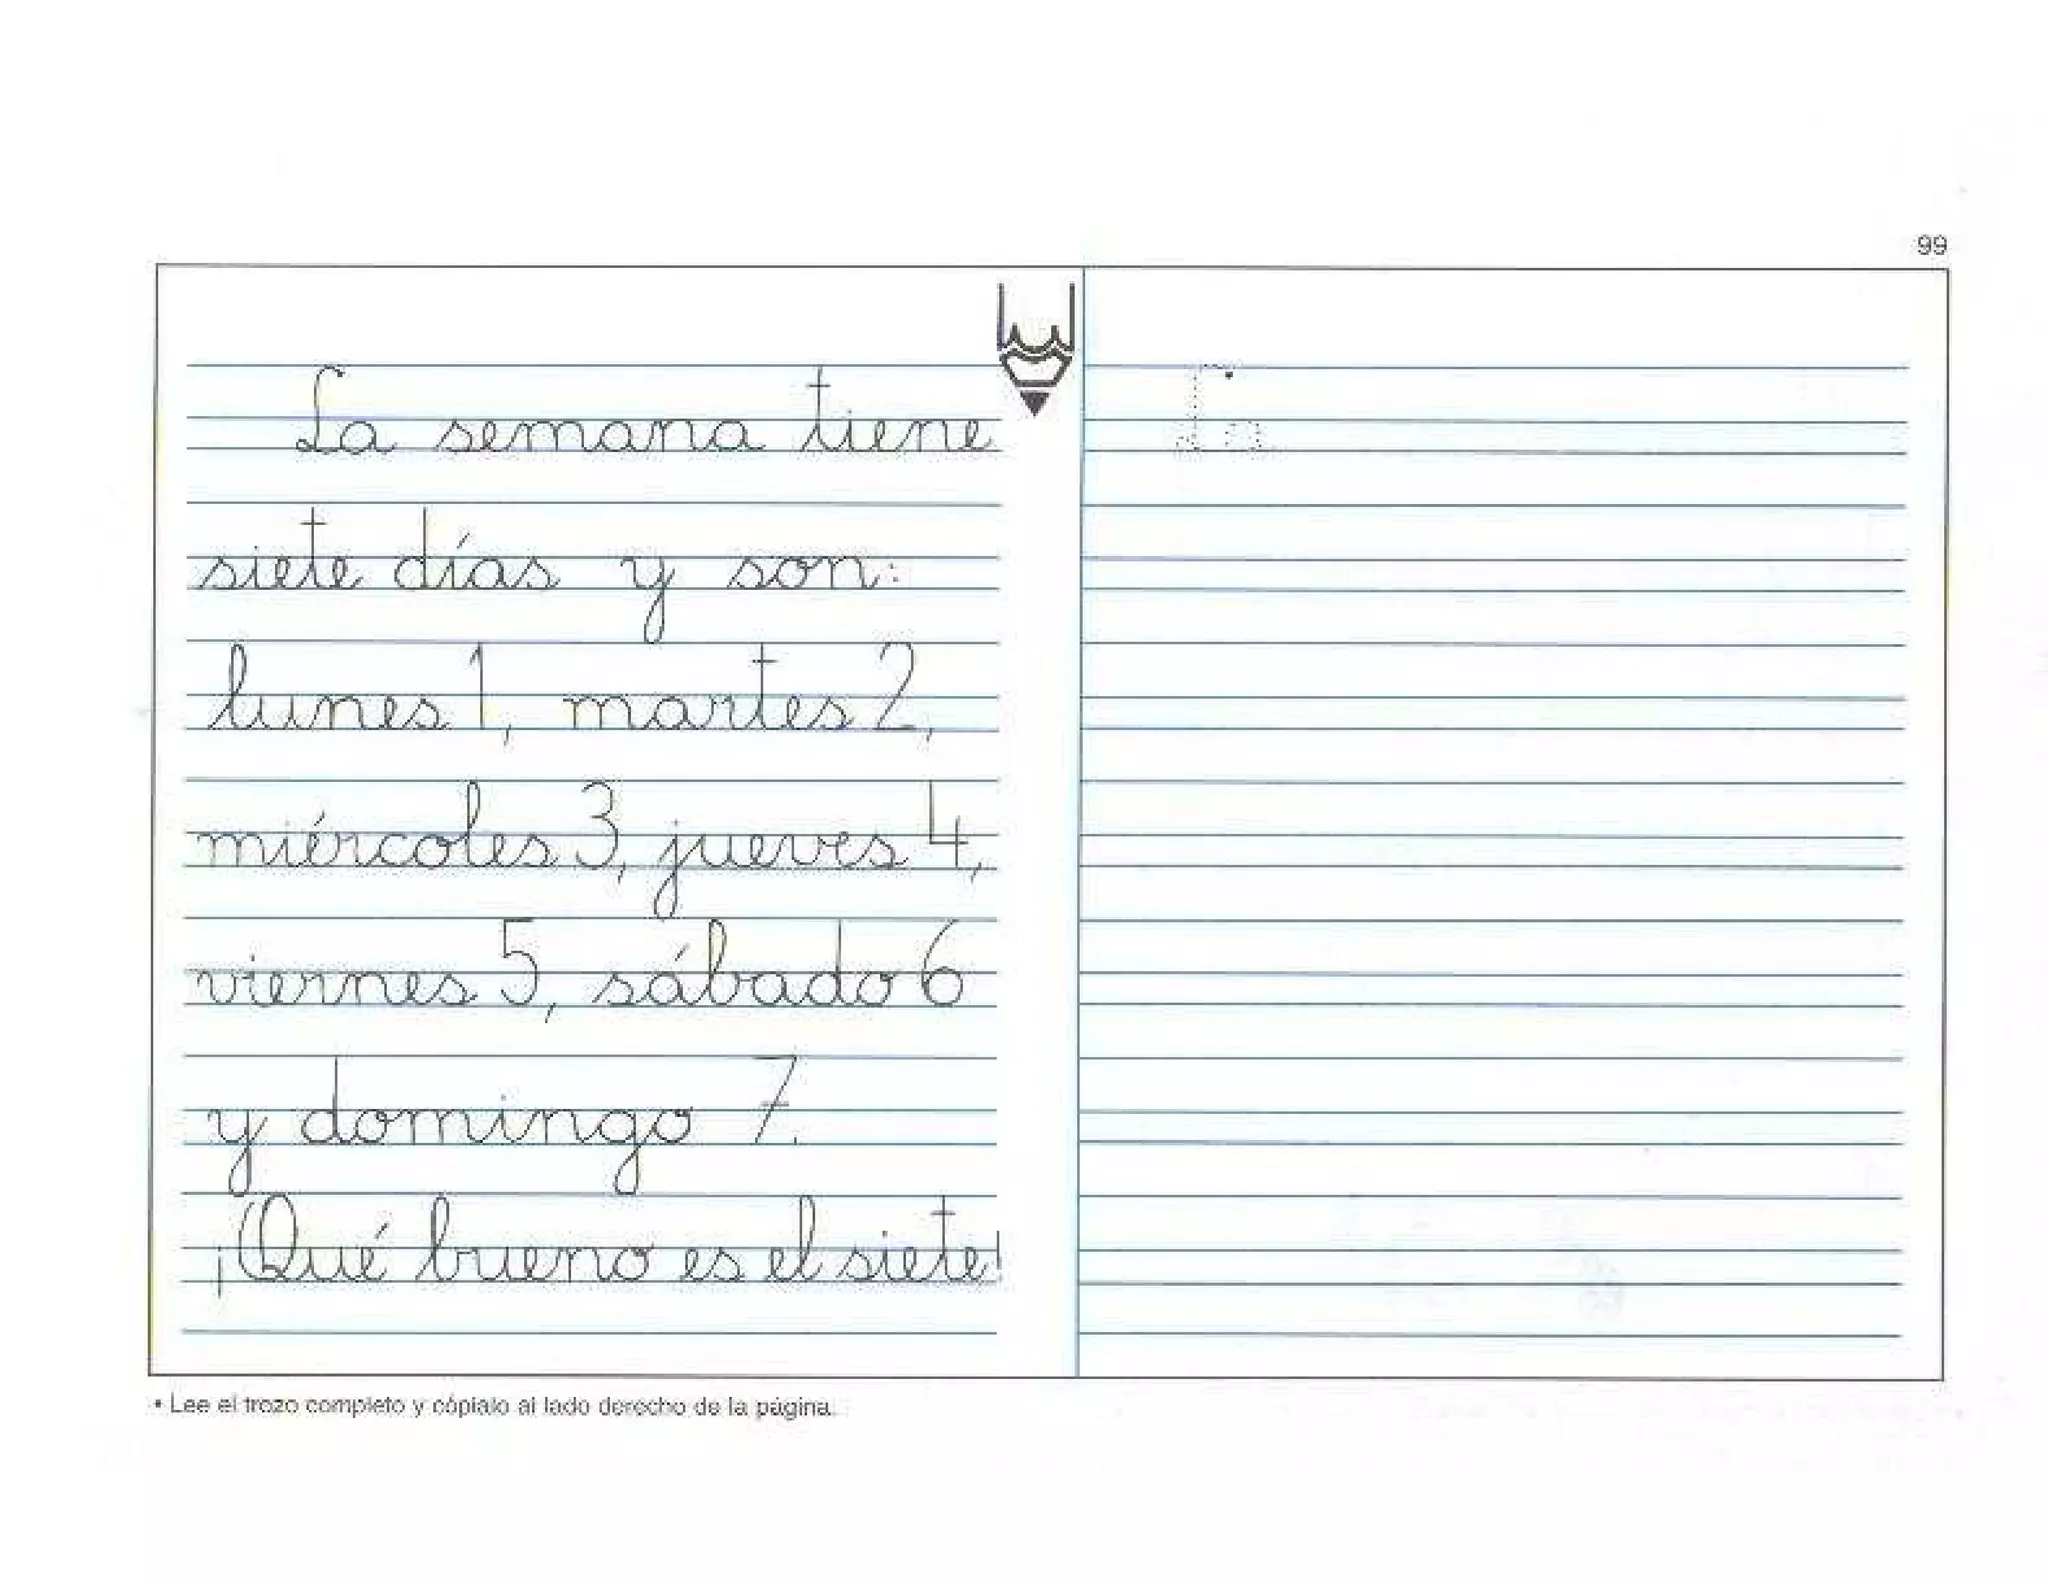 99
La semana tiene
La
siete días y son:
lunes 1, martes 2,
miércoles 3, jueves 4,
viernes 5, sábado 6
y domingo 7.
¡Qué bueno es el siete!
• Lee el trozo completo y cópialo al lado derecho de la página.